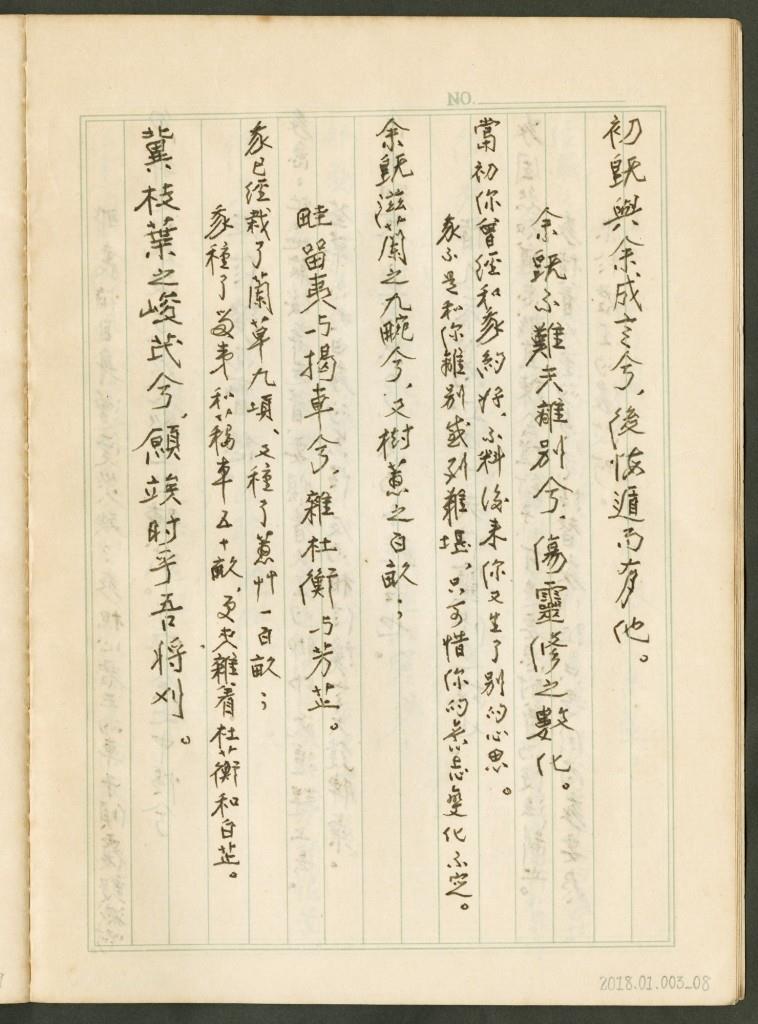 NO.
初既與余成言兮、後悔遁而有他。
余既不難夫離別兮、傷靈修之數化。
當初你曾經和我約好、不料後來你又生了別的心思。
我不是和你離別感到難堪、只可惜你的意志變化不定。
余既滋蘭之九畹兮、又樹蕙之百畝；
畦留夷与揭車兮、雜杜衡与芳芷。
我已經栽了蘭草九頃、又種了蕙艸一百畝；
我種了留夷和藒車五十畝、更夾雜着杜蘅和白芷。
冀枝葉之峻茂兮、願竢时乎吾将刈。
2018.01.003_08